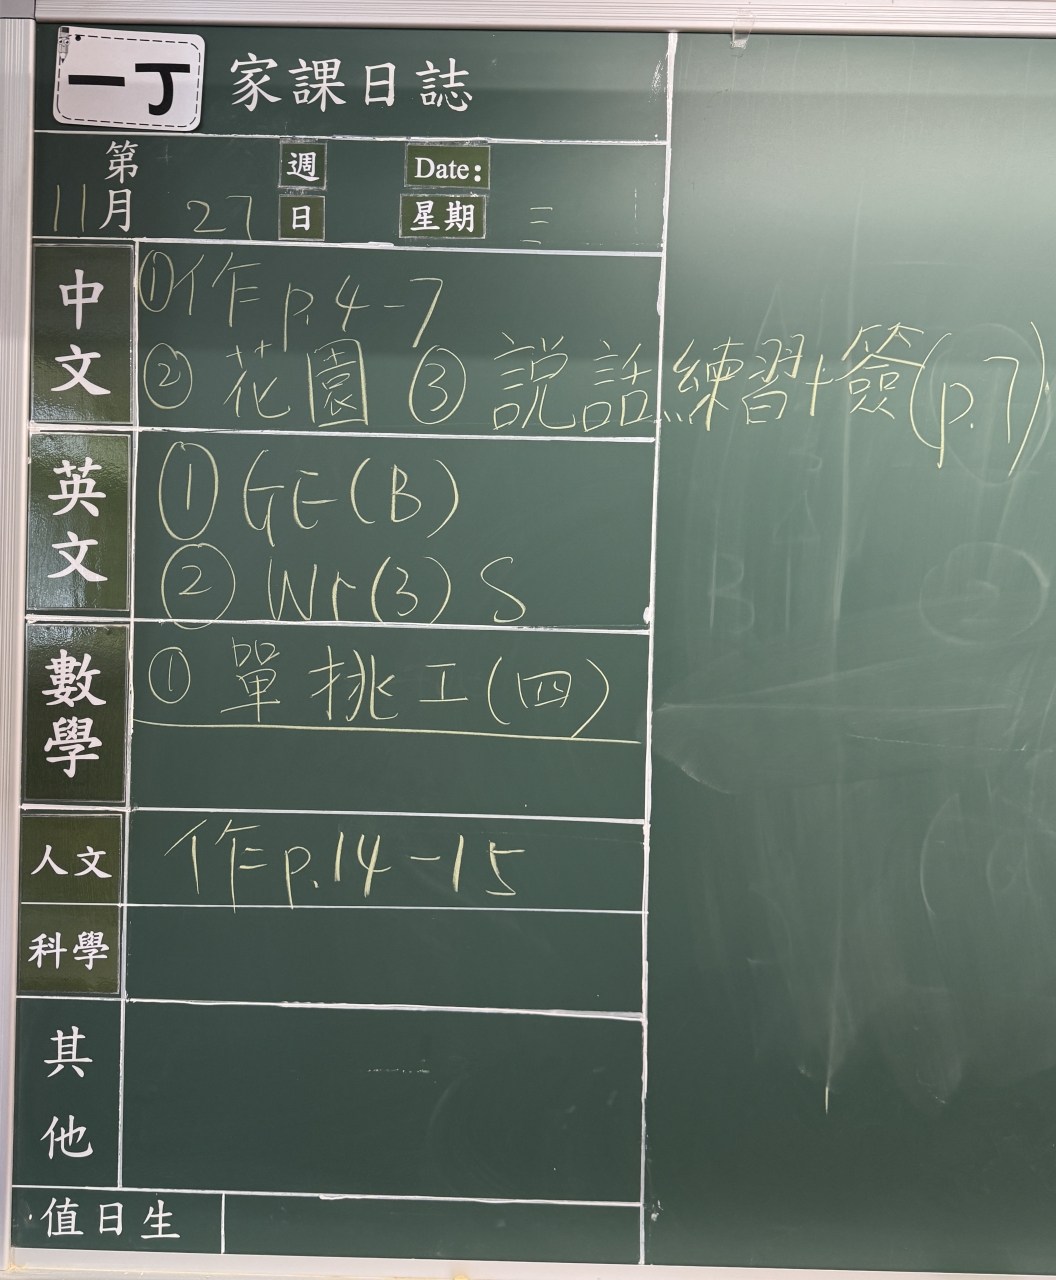 一丁 家課日誌
第 週 Date:
11月 27 日 星期 三
中文
①作p.4-7
②花園 ③說話練習+簽(p.7)
英文
①GE(B)
②Wr(3)S
數學
①單挑工(四)
人文
作p.14-15
科學
其他
值日生